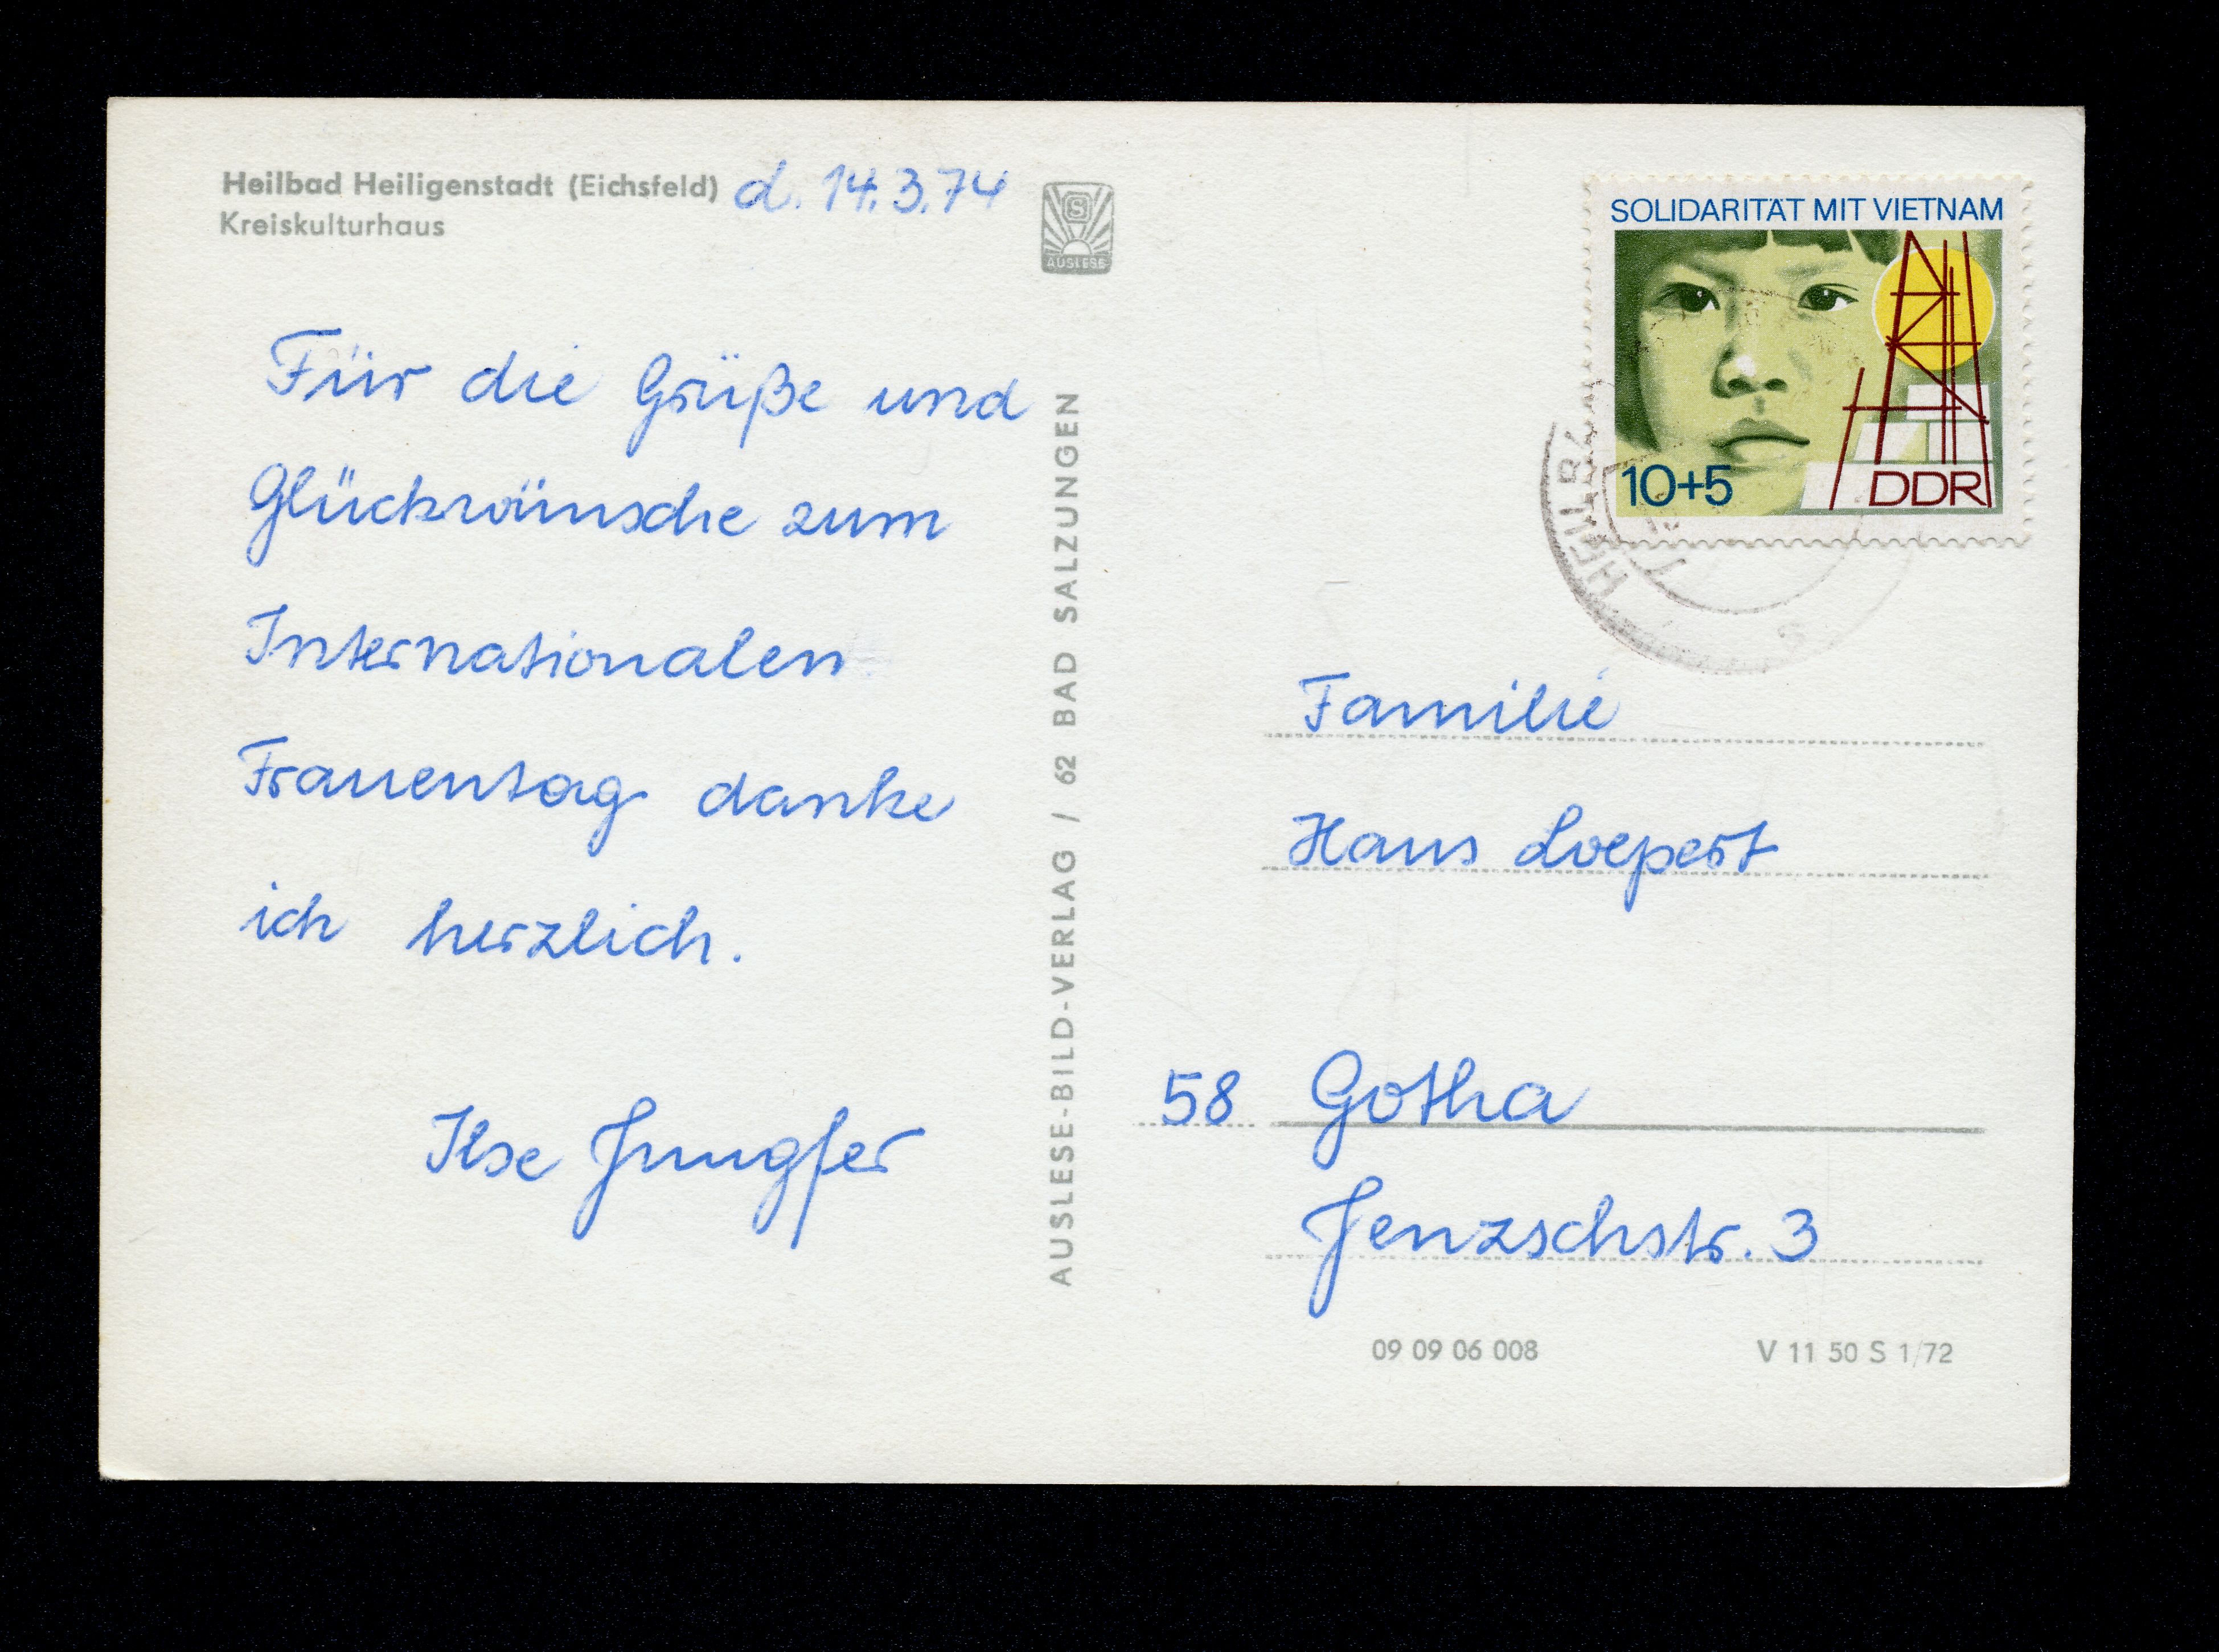 Heilbad Heiligenstadt (Eichsfeld) d. 14.3.74
Kreiskulturhaus
S
AUSLESE
Für die Grüße und
Glückwünsche zum
Internationalen
Frauentag danke
ich herzlich.
Ilse Jungfer
AUSLESE-BILD-VERLAG / 62 BAD SALZUNGEN
SOLIDARITÄT MIT VIETNAM
10+5
DDR
Familie
Hans Loepert
58 Gotha
Jenzschstr. 3
09 09 06 008
V 11 50 S 1/72